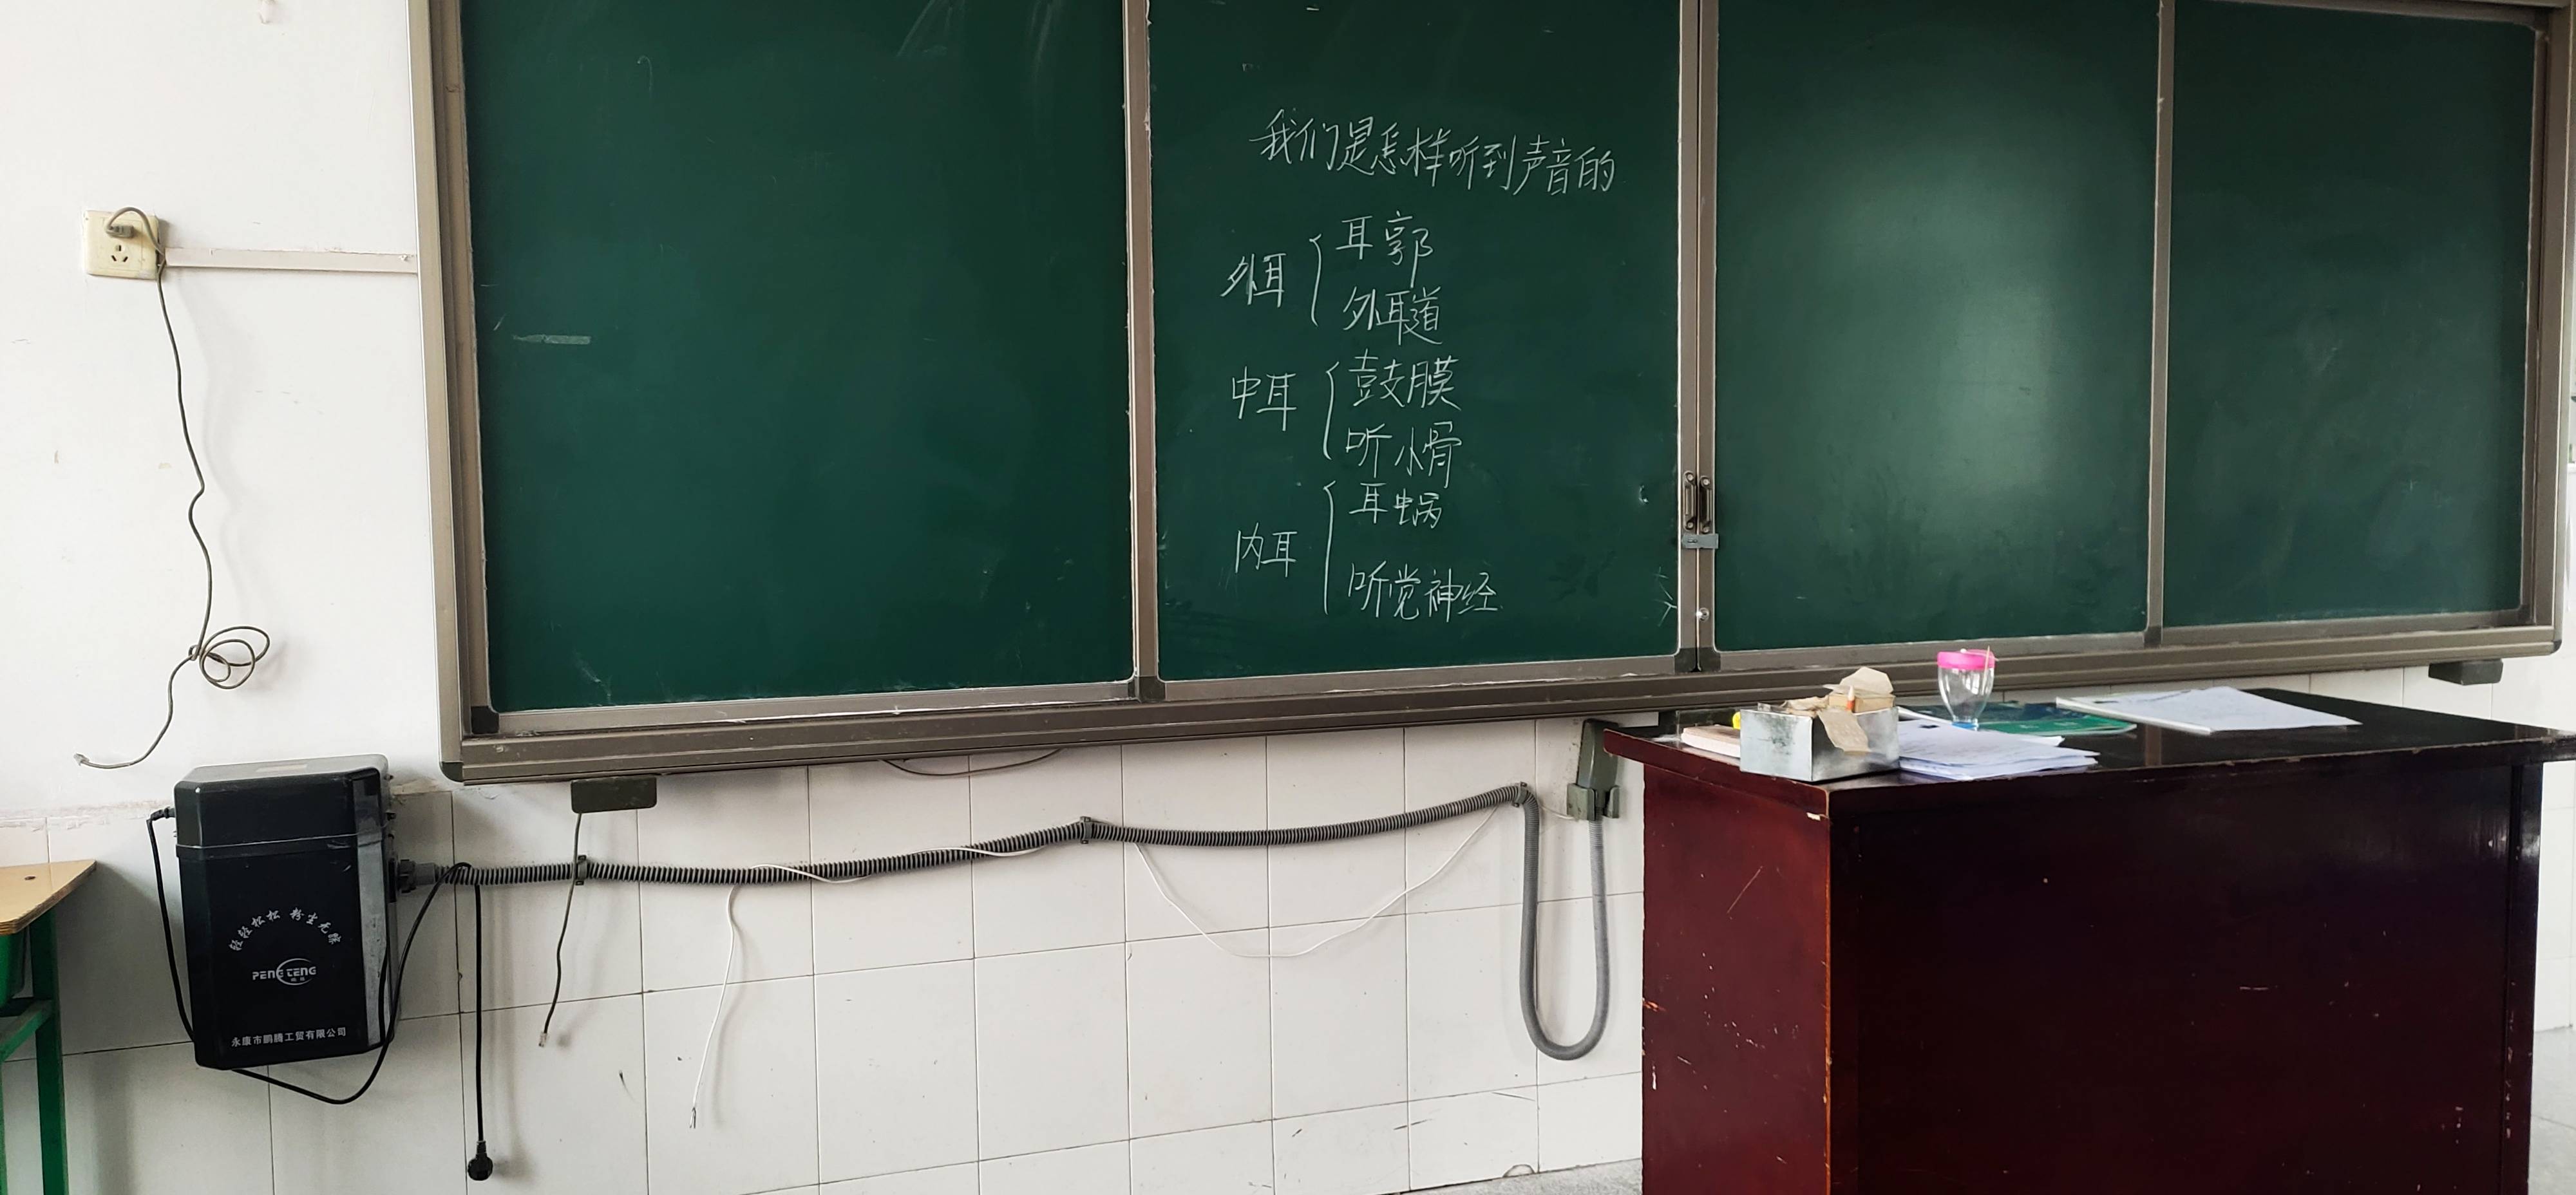 我们是怎样听到声音的
外耳
耳郭
外耳道
中耳
鼓膜
听小骨
内耳
耳蜗
听觉神经
轻轻松松 粉尘无踪
PENG TENG
永康市鹏腾工贸有限公司